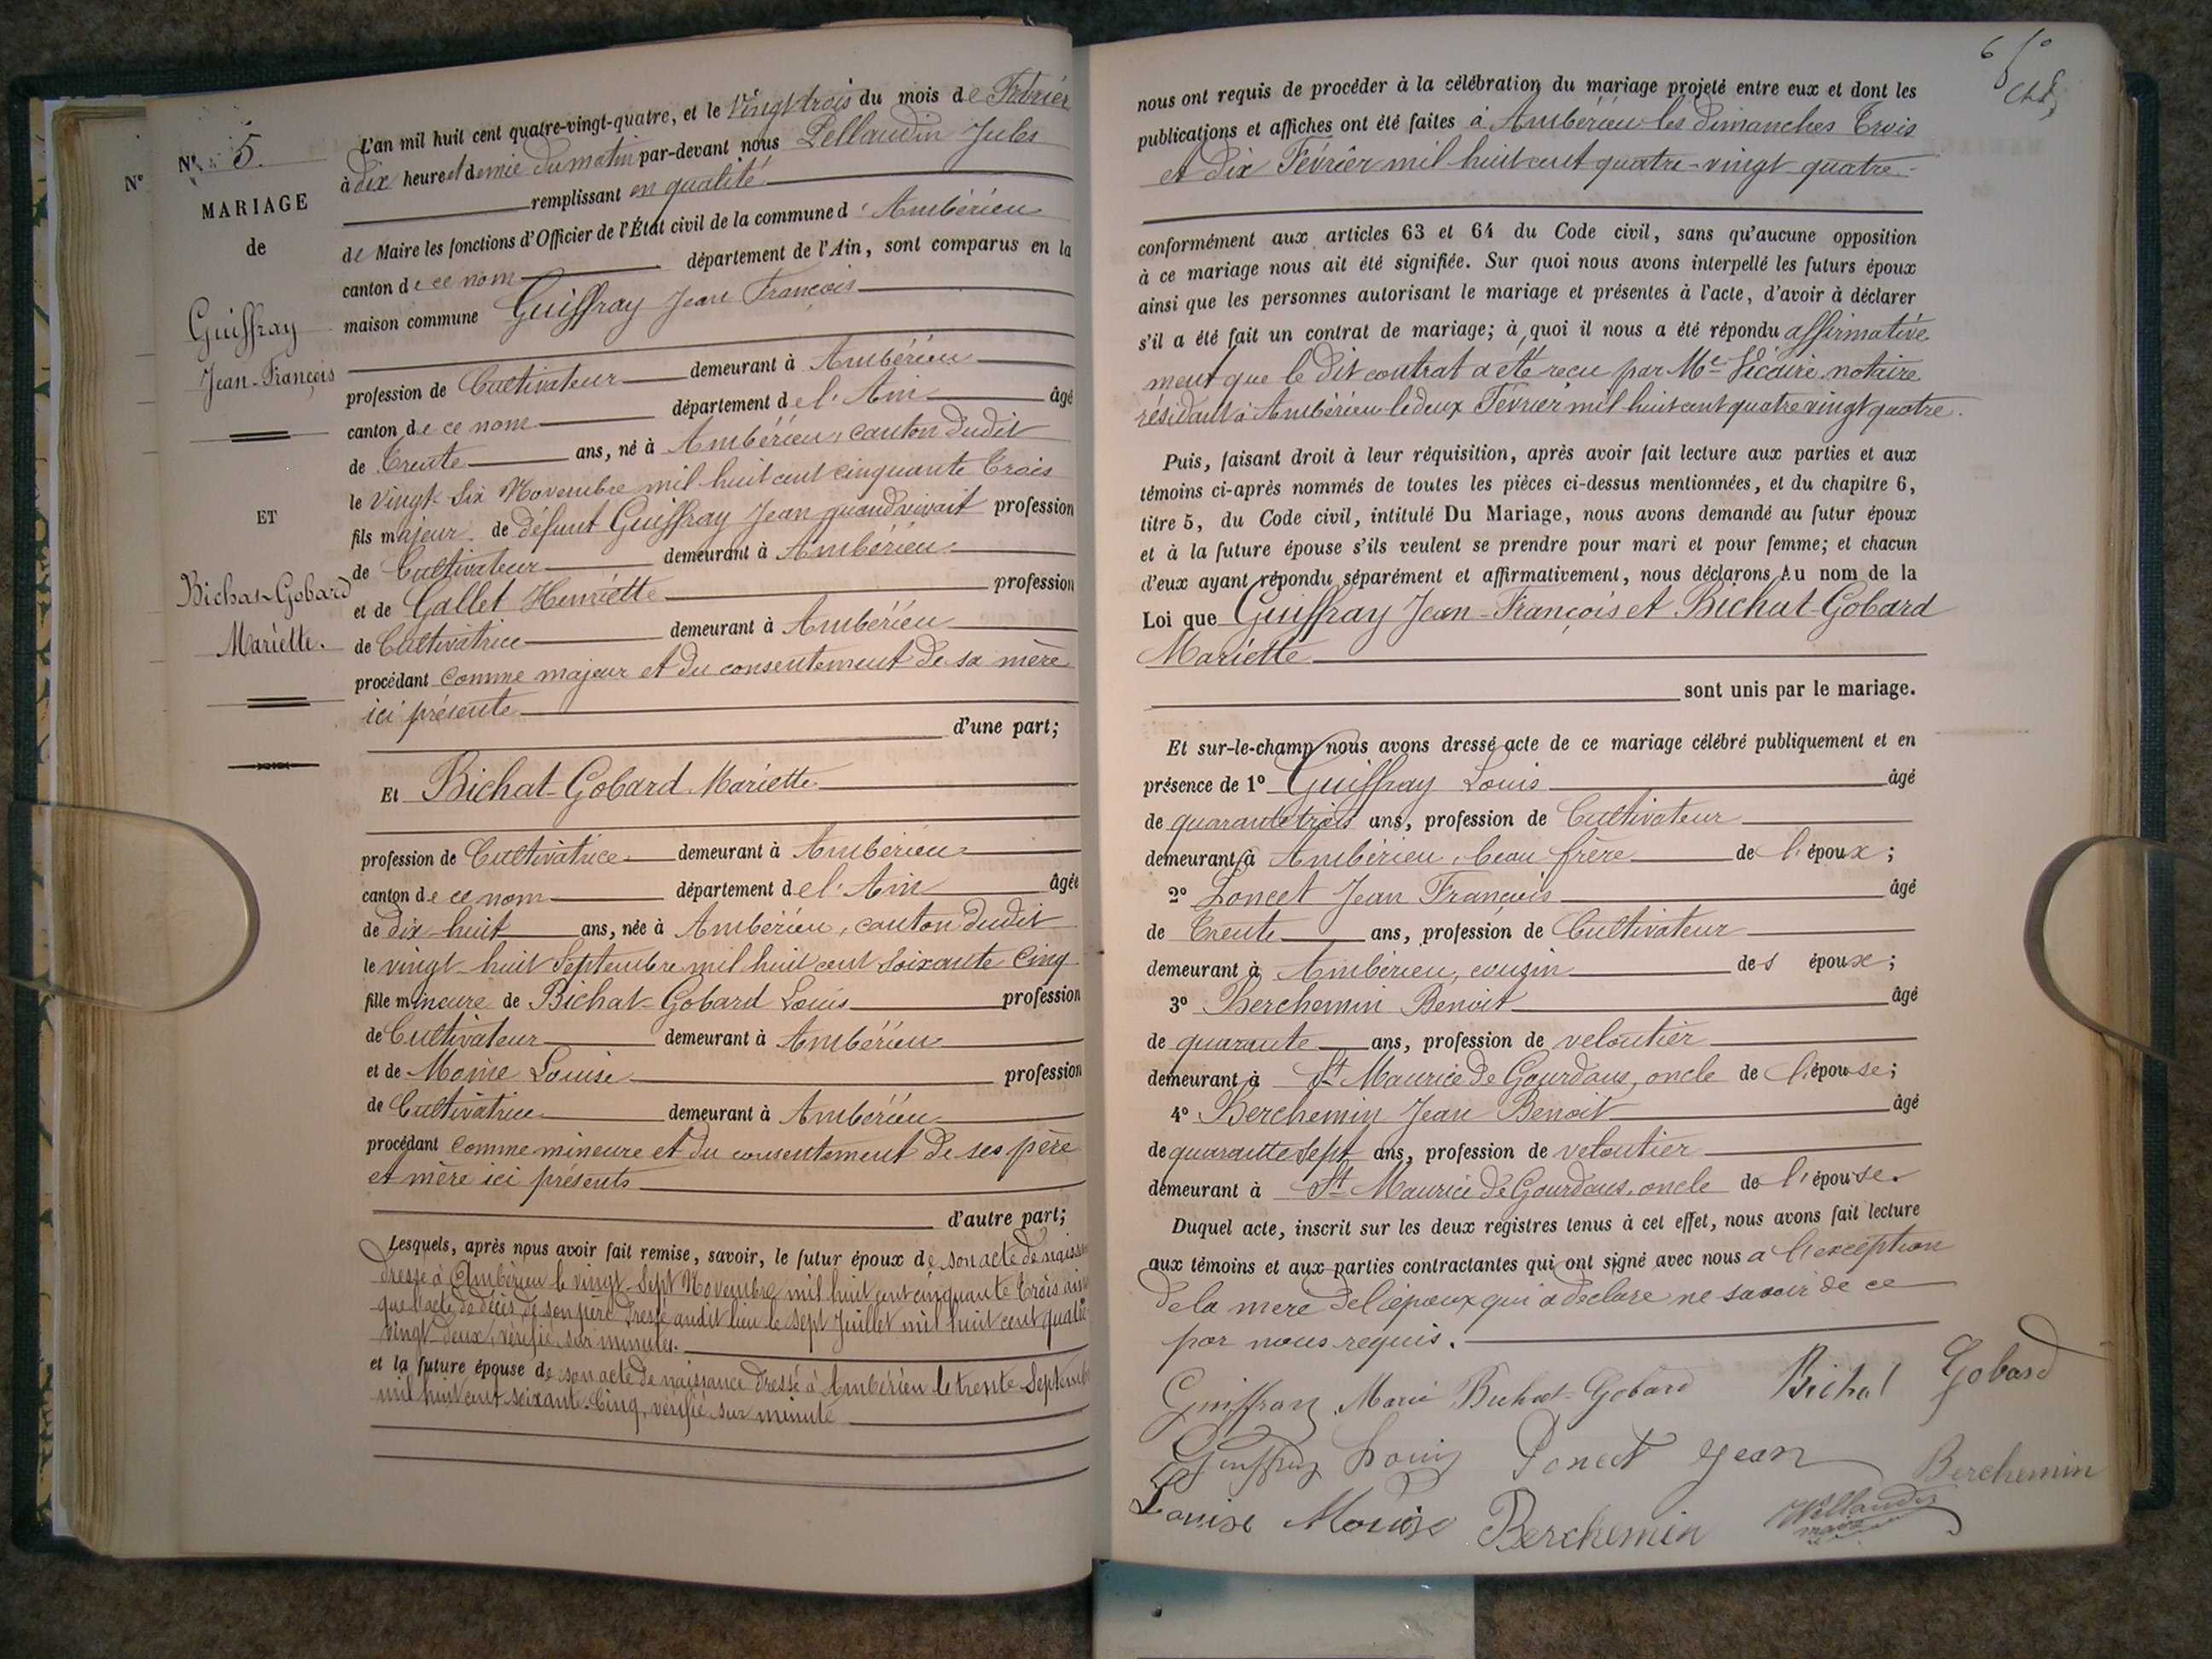 N°
N° 5.
MARIAGE
de
Guiffray
Jean-François
ET
Bichat-Gobard
Mariette.
L'an mil huit cent quatre-vingt-quatre, et le Vingt trois du mois de Février
à dix heure et demie du matin par-devant nous Pellaudin Jules
remplissant en qualité
de Maire les fonctions d'Officier de l'État civil de la commune d'Ambérieu
canton de ce nom département de l'Ain, sont comparus en la
maison commune Guiffray Jean François
profession de Cultivateur demeurant à Ambérieu
canton de ce nom département de l'Ain âgé
de Trente ans, né à Ambérieu, canton dudit
le vingt Six Novembre mil huit cent cinquante Trois
fils majeur de défunt Guiffray Jean quand vivait profession
de Cultivateur demeurant à Ambérieu
et de Gallet Henriette profession
de Cultivatrice demeurant à Ambérieu
procédant comme majeur et du consentement de sa mère
ici présente
d'une part;
Et Bichat-Gobard Mariette
profession de Cultivatrice demeurant à Ambérieu
canton de ce nom département de l'Ain âgée
de dix-huit ans, née à Ambérieu, canton dudit
le vingt-huit Septembre mil huit cent soixante Cinq
fille mineure de Bichat-Gobard Louis profession
de Cultivateur demeurant à Ambérieu
et de Moine Louise profession
de Cultivatrice demeurant à Ambérieu
procédant comme mineure et du consentement de ses père
et mère ici présents
d'autre part;
Lesquels, après nous avoir fait remise, savoir, le futur époux de son acte de naiss
dressé à Ambérieu le vingt-Sept Novembre mil huit cent cinquante Trois ains
que l'acte de décès de son père dressé audit lieu le sept Juillet mil huit cent quatre
vingt-deux, vérifié sur minutes.
et la future épouse de son acte de naissance dressé à Ambérieu le trente Septemb
mil huit cent soixante-Cinq, vérifié sur minute
6
nous ont requis de procéder à la célébration du mariage projeté entre eux et dont les
publications et affiches ont été faites à Ambérieu les dimanches Trois
et dix Février mil huit cent quatre-vingt-quatre
conformément aux articles 63 et 64 du Code civil, sans qu'aucune opposition
à ce mariage nous ait été signifiée. Sur quoi nous avons interpellé les futurs époux
ainsi que les personnes autorisant le mariage et présentes à l'acte, d'avoir à déclarer
s'il a été fait un contrat de mariage; à quoi il nous a été répondu affirmative
ment que le dit contrat a été recu par Me Vicaire notaire
résidant à Ambérieu le deux Février mil huit cent quatre vingt quatre.
Puis, faisant droit à leur réquisition, après avoir fait lecture aux parties et aux
témoins ci-après nommés de toutes les pièces ci-dessus mentionnées, et du chapitre 6,
titre 5, du Code civil, intitulé Du Mariage, nous avons demandé au futur époux
et à la future épouse s'ils veulent se prendre pour mari et pour femme; et chacun
d'eux ayant répondu séparément et affirmativement, nous déclarons Au nom de la
Loi que Guiffray Jean-François et Bichat-Gobard
Mariette
sont unis par le mariage.
Et sur-le-champ nous avons dressé acte de ce mariage célébré publiquement et en
présence de 1° Guiffray Louis âgé
de quarante trois ans, profession de Cultivateur
demeurant à Ambérieu, beau frère de l'époux;
2° Poncet Jean François âgé
de Trente ans, profession de Cultivateur
demeurant à Ambérieu, cousin des époux;
3° Berchemin Benoit âgé
de quarante ans, profession de veloutier
demeurant à St Maurice de Gourdans, oncle de l'épouse;
4° Berchemin Jean Benoit âgé
de quarante sept ans, profession de veloutier
demeurant à St Maurice de Gourdans, oncle de l'épouse.
Duquel acte, inscrit sur les deux registres tenus à cet effet, nous avons fait lecture
aux témoins et aux parties contractantes qui ont signé avec nous a l'exception
de la mere de l'époux qui a déclaré ne savoir de ce
par nous requis.
Guiffray Marie Bichat-Gobard Bichat Gobard
Guiffray Louis Poncet Jean Berchemin
Louise Moine Berchemin Pellaudin
maire